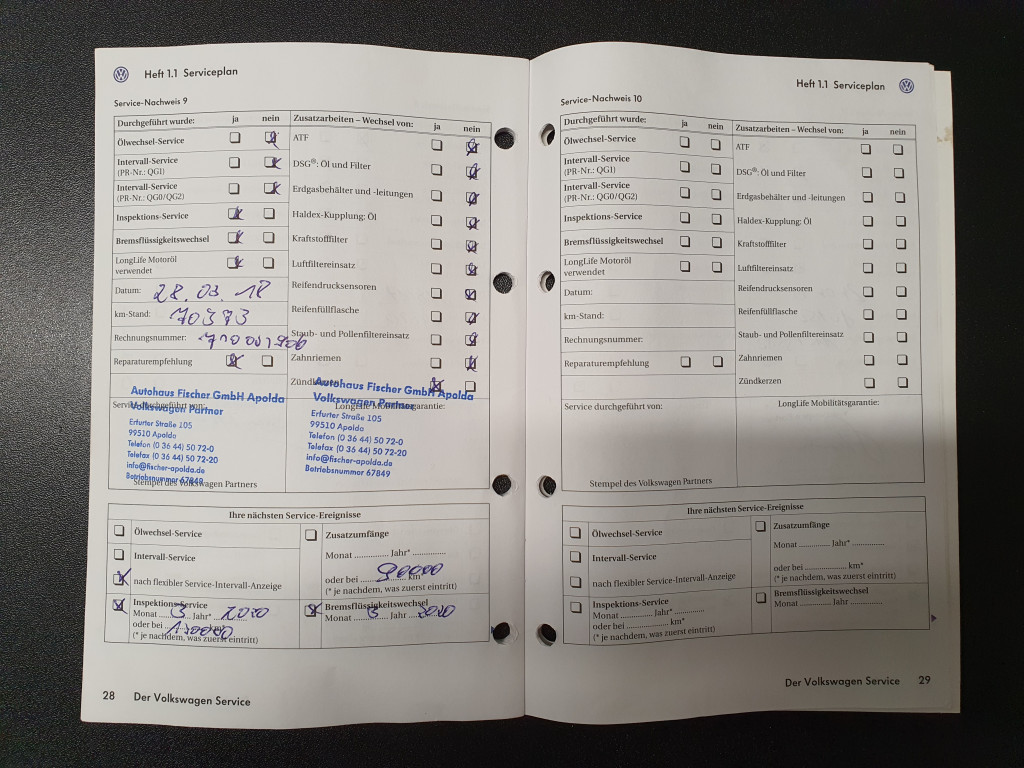 Heft 1.1 Serviceplan
Service-Nachweis 9
Durchgeführt wurde: ja nein
Ölwechsel-Service
Intervall-Service
(PR-Nr.: QG1)
Intervall-Service
(PR-Nr.: QG0/QG2)
Inspektions-Service
Bremsflüssigkeitswechsel
LongLife Motoröl
verwendet
Datum: 28.03.18
km-Stand: 70373
Rechnungsnummer:
Reparaturempfehlung
Zusatzarbeiten – Wechsel von: ja nein
ATF
DSG®: Öl und Filter
Erdgasbehälter und -leitungen
Haldex-Kupplung: Öl
Kraftstofffilter
Luftfiltereinsatz
Reifendrucksensoren
Reifenfüllflasche
Staub- und Pollenfiltereinsatz
Zahnriemen
Zündkerzen
Service durchgeführt von:
Autohaus Fischer GmbH Apolda
Volkswagen Partner
Erfurter Straße 105
99510 Apolda
Telefon (0 36 44) 50 72-0
Telefax (0 36 44) 50 72-20
info@fischer-apolda.de
Betriebsnummer 67849
Stempel des Volkswagen Partners
LongLife Mobilitätsgarantie:
Autohaus Fischer GmbH Apolda
Volkswagen Partner
Erfurter Straße 105
99510 Apolda
Telefon (0 36 44) 50 72-0
Telefax (0 36 44) 50 72-20
info@fischer-apolda.de
Betriebsnummer 67849
Ihre nächsten Service-Ereignisse
Ölwechsel-Service
Intervall-Service
nach flexibler Service-Intervall-Anzeige
Inspektions-Service
Monat 3 Jahr* 2020
oder bei 130000 km*
(* je nachdem, was zuerst eintritt)
Zusatzumfänge
Monat ............... Jahr* ..............
oder bei 90000 km*
(* je nachdem, was zuerst eintritt)
Bremsflüssigkeitswechsel
Monat 3 Jahr 2020
28 Der Volkswagen Service
Heft 1.1 Serviceplan
Service-Nachweis 10
Durchgeführt wurde: ja nein
Ölwechsel-Service
Intervall-Service
(PR-Nr.: QG1)
Intervall-Service
(PR-Nr.: QG0/QG2)
Inspektions-Service
Bremsflüssigkeitswechsel
LongLife Motoröl
verwendet
Datum:
km-Stand:
Rechnungsnummer:
Reparaturempfehlung
Zusatzarbeiten – Wechsel von: ja nein
ATF
DSG®: Öl und Filter
Erdgasbehälter und -leitungen
Haldex-Kupplung: Öl
Kraftstofffilter
Luftfiltereinsatz
Reifendrucksensoren
Reifenfüllflasche
Staub- und Pollenfiltereinsatz
Zahnriemen
Zündkerzen
Service durchgeführt von:
Stempel des Volkswagen Partners
LongLife Mobilitätsgarantie:
Ihre nächsten Service-Ereignisse
Ölwechsel-Service
Intervall-Service
nach flexibler Service-Intervall-Anzeige
Inspektions-Service
Monat .............. Jahr* ..............
oder bei .................... km*
(* je nachdem, was zuerst eintritt)
Zusatzumfänge
Monat .............. Jahr* ..............
oder bei .................... km*
(* je nachdem, was zuerst eintritt)
Bremsflüssigkeitswechsel
Monat .............. Jahr ..............
Der Volkswagen Service 29